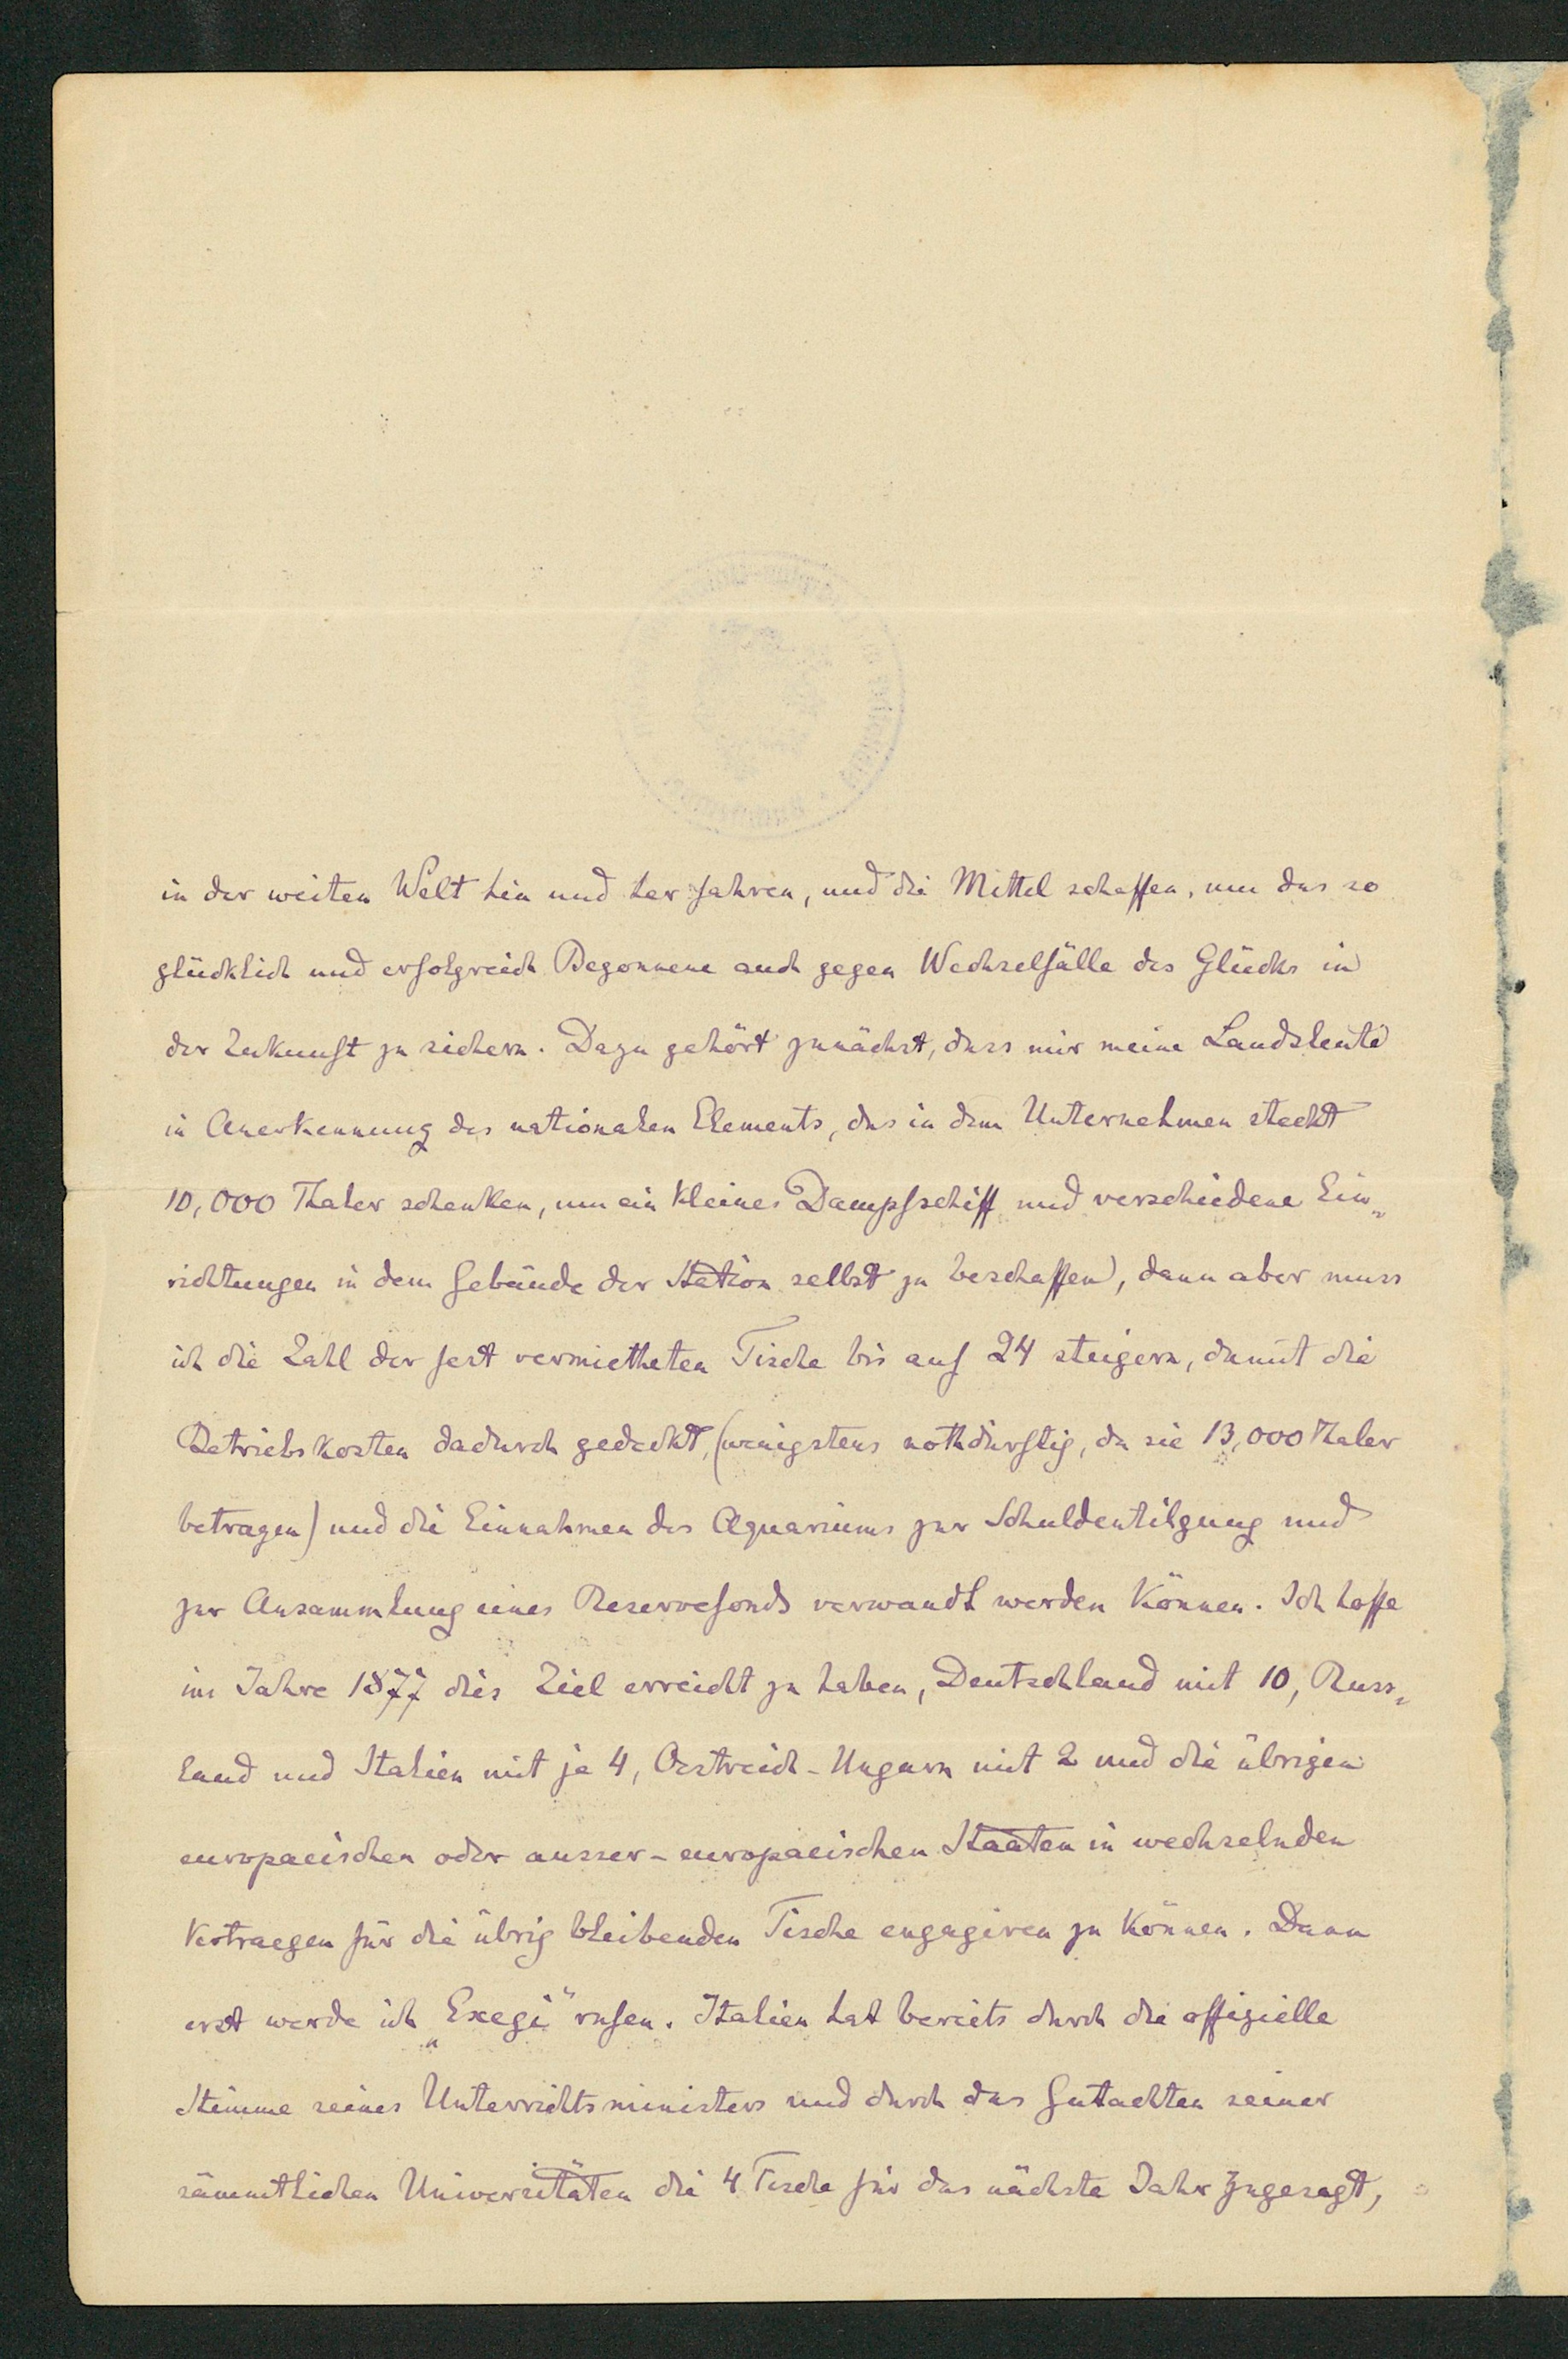 in der weiten Welt hin und her fahren, und die Mittel schaffen, um das so
glücklich und erfolgreich Begonnene auch gegen Wechselfälle des Glücks in
der Zukunft zu sichern. Dazu gehört zunächst, dass mir meine Landsleute
in Anerkennung des nationalen Elements, das in dem Unternehmen steckt
10,000 Thaler schenken, um ein kleines Dampfschiff und verschiedene Ein„
richtungen in dem Gebäude der Station selbst zu beschaffen, dann aber muss
ich die Zahl der fest vermietheten Tische bis auf 24 steigern, damit die
Betriebskosten dadurch gedeckt, (wenigstens nothdürftig, da sie 13,000 Thaler
betragen) und die Einnahmen des Aquariums zur Schuldentilgung und
zur Ansammlung eines Reservefonds verwandt werden können. Ich hoffe
im Jahre 1877 dies Ziel erreicht zu haben, Deutschland mit 10, Russ„
land und Italien mit je 4, Oestreich-Ungarn mit 2 und die übrigen
europaeischen oder ausser-europaeischen Staaten in wechselnden
Vertraegen für die übrig bleibenden Tische engagiren zu können. Dann
erst werde ich „Exegi“ rufen. Italien hat bereits durch die offizielle
Stimme seines Unterrichtsministers und durch das Gutachten seiner
sämmtlichen Universitäten die 4 Tische für das nächste Jahr zugesagt,